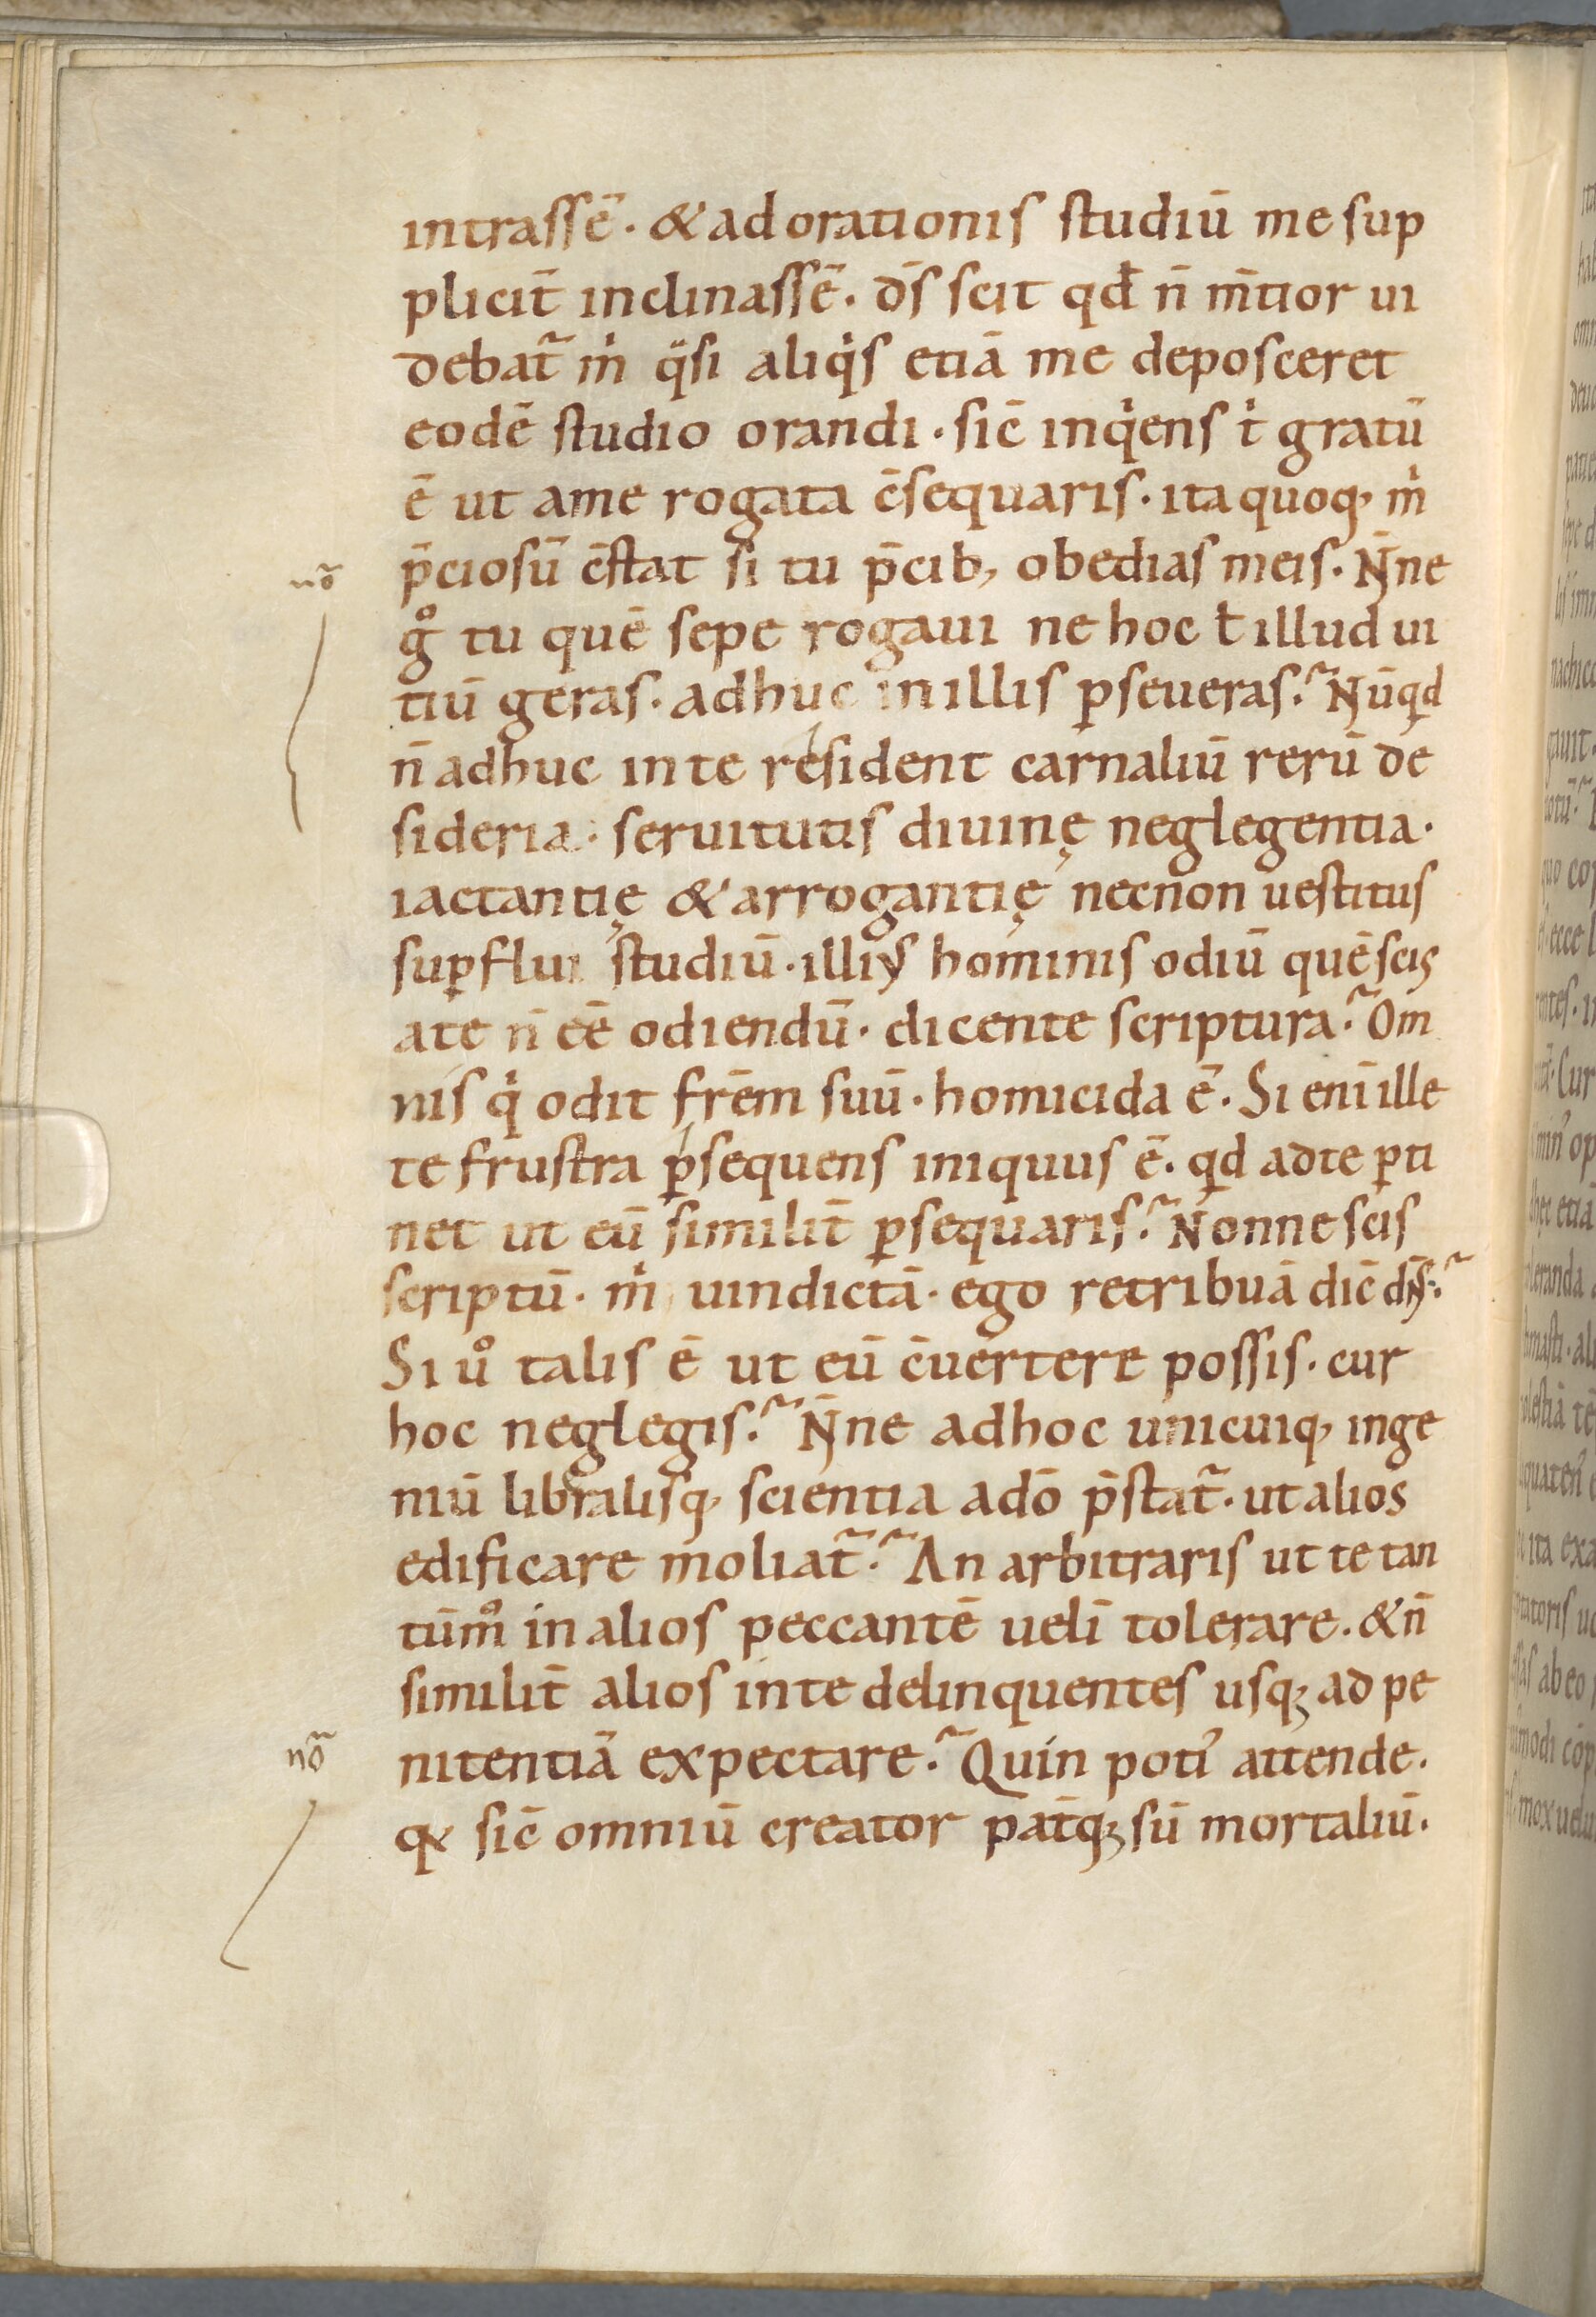 intrassē · & ad orationis studiū me sup
plicit̄ inclinassē · d̄s scit qđ n̄ m̄tior ui
debat᷑ m̍ q̈si aliq̍s etiā me deposceret
eodē studio orandi · sic̄ inq̍ens t̍ gratū
ē ut ame rogata c̄sequaris · ita quoq, m̍
p̄ciosū c̄stat si tu p̄cib, obedias meis · N̄ne
nō
g̊ tu quē sepe rogaui ne hoc ł illud ui
tiū geras · adhuc in illis ꝑseueras ? Nūqd
n̄ adhuc in te resident carnaliū rerū de
sideria · seruitutis diuinę neglegentia ·
iactantię & arrogantię necnon uestitus
suꝑflui studiū · illius hominis odiū quē scis
ate n̄ eē odiendū · dicente scriptura ? Om
nis q̍ odit frēm suū · homicida ē · Si eni ille
te frustra ꝑsequens iniquus ē · qd adte ꝑti
net ut eū similit̄ ꝑsequaris ? Nonne scis
scriptū · m̍ uindictā · ego retribuā dic̄ dn̄s ?
Si ů talis ē ut eū c̄uertere possis · cur
hoc neglegis ? N̄ne adhoc unicuiq, inge
niū libralisq, scientia adō p̄stat᷑ · ut alios
edificare moliat᷑ ? An arbitraris ut te tan
tūm̊ in alios peccantē uelī tolerare · & n̄
similit̄ alios in te delinquentes usqꝫ ad pe
nō
nitentiā expectare ? Quin poti᾽ attende ·
qꝛ sic̄ omniū creator pat̄qꝫ sū mortaliū ·